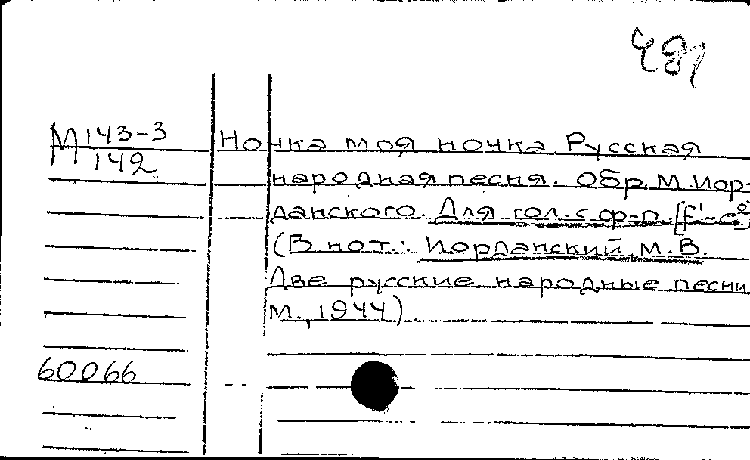 481
М 143-3
142
Ночка моя ночка. Русская
народная песня. Обр. М. Иор-
данского. Для гол. с ф-п. [f¹-c²]
(В нот.: Иорданский, М. В.
Две русские народные песни.
М., 1944)
60066